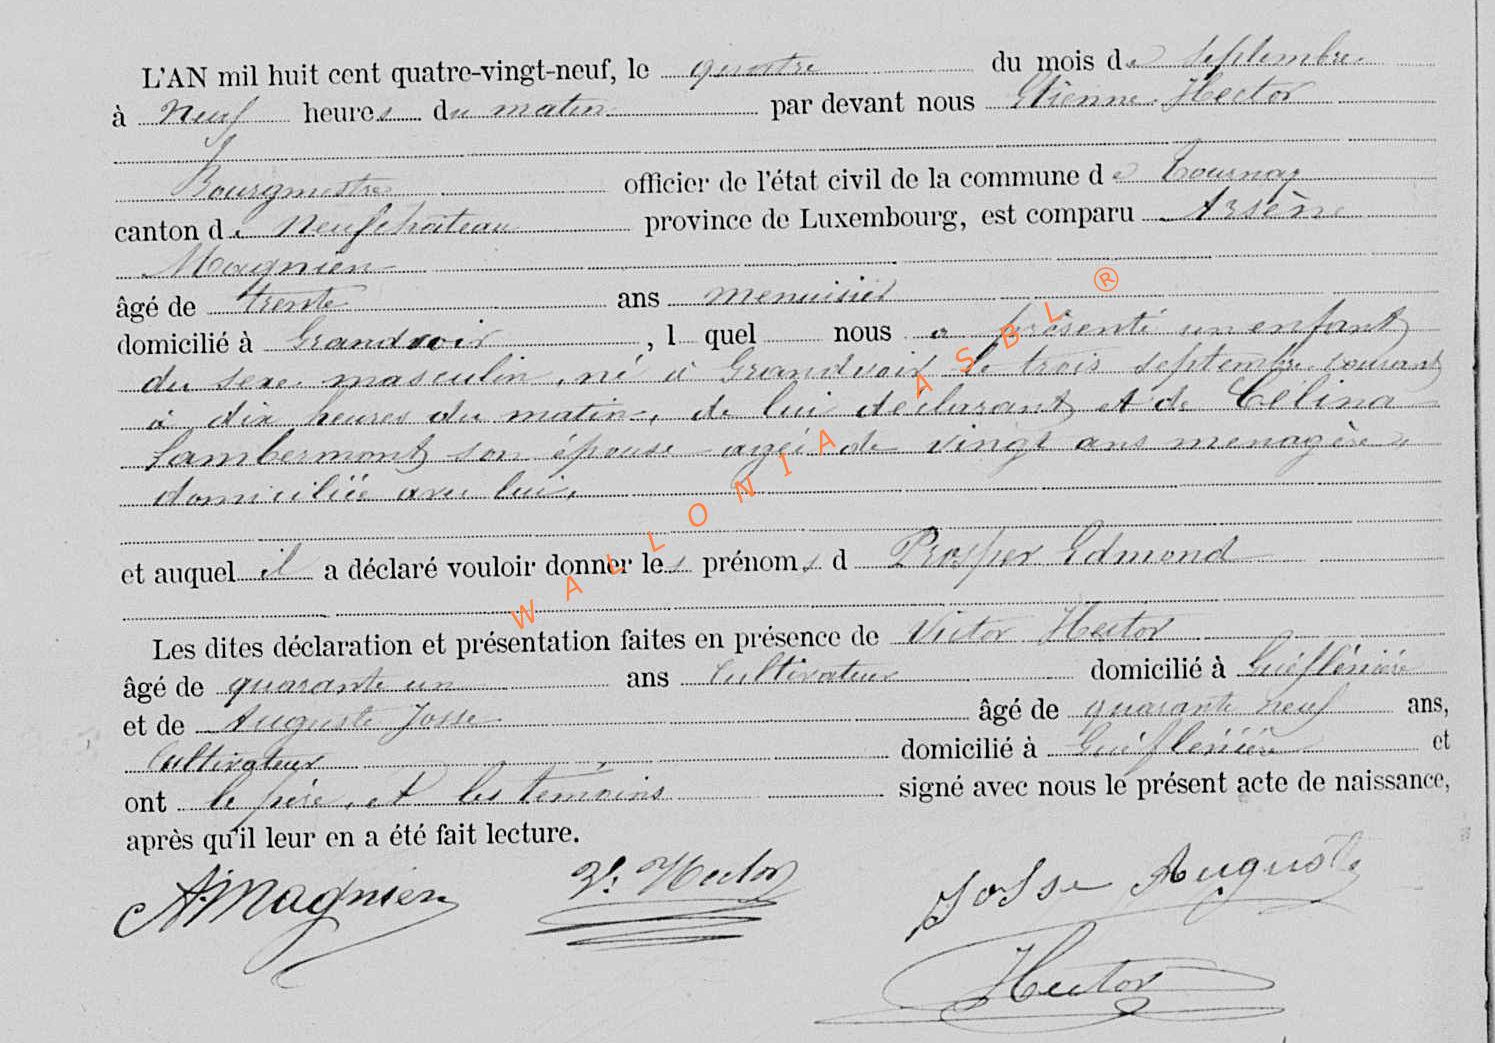 L'AN mil huit cent quatre-vingt-neuf, le quatre du mois de Septembre
à neuf heures du matin par devant nous Etienne Hector
Bourgmestre officier de l'état civil de la commune de Tournay
canton de Neufchâteau province de Luxembourg, est comparu Arsène
Magnien
âgé de trente ans menuisier
domicilié à Grandvoir, l quel nous a présenté un enfant
du sexe masculin, né à Grandvoir le trois septembre courant
à dix heures du matin, de lui déclarant et de Célina
Lambermont son épouse agée de vingt ans menagère
domiciliée avec lui,
et auquel il a déclaré vouloir donner les prénoms d Prosper Edmond
Les dites déclaration et présentation faites en présence de Victor Hector
âgé de quarante un ans Cultivateur domicilié à
et de Auguste Josse âgé de quarante neuf ans,
Cultivateur domicilié à et
ont le père, et les témoins signé avec nous le présent acte de naissance,
après qu'il leur en a été fait lecture.
A. Magnien V. Hector Josse Auguste
Hector
WALLONIA ASBL ®